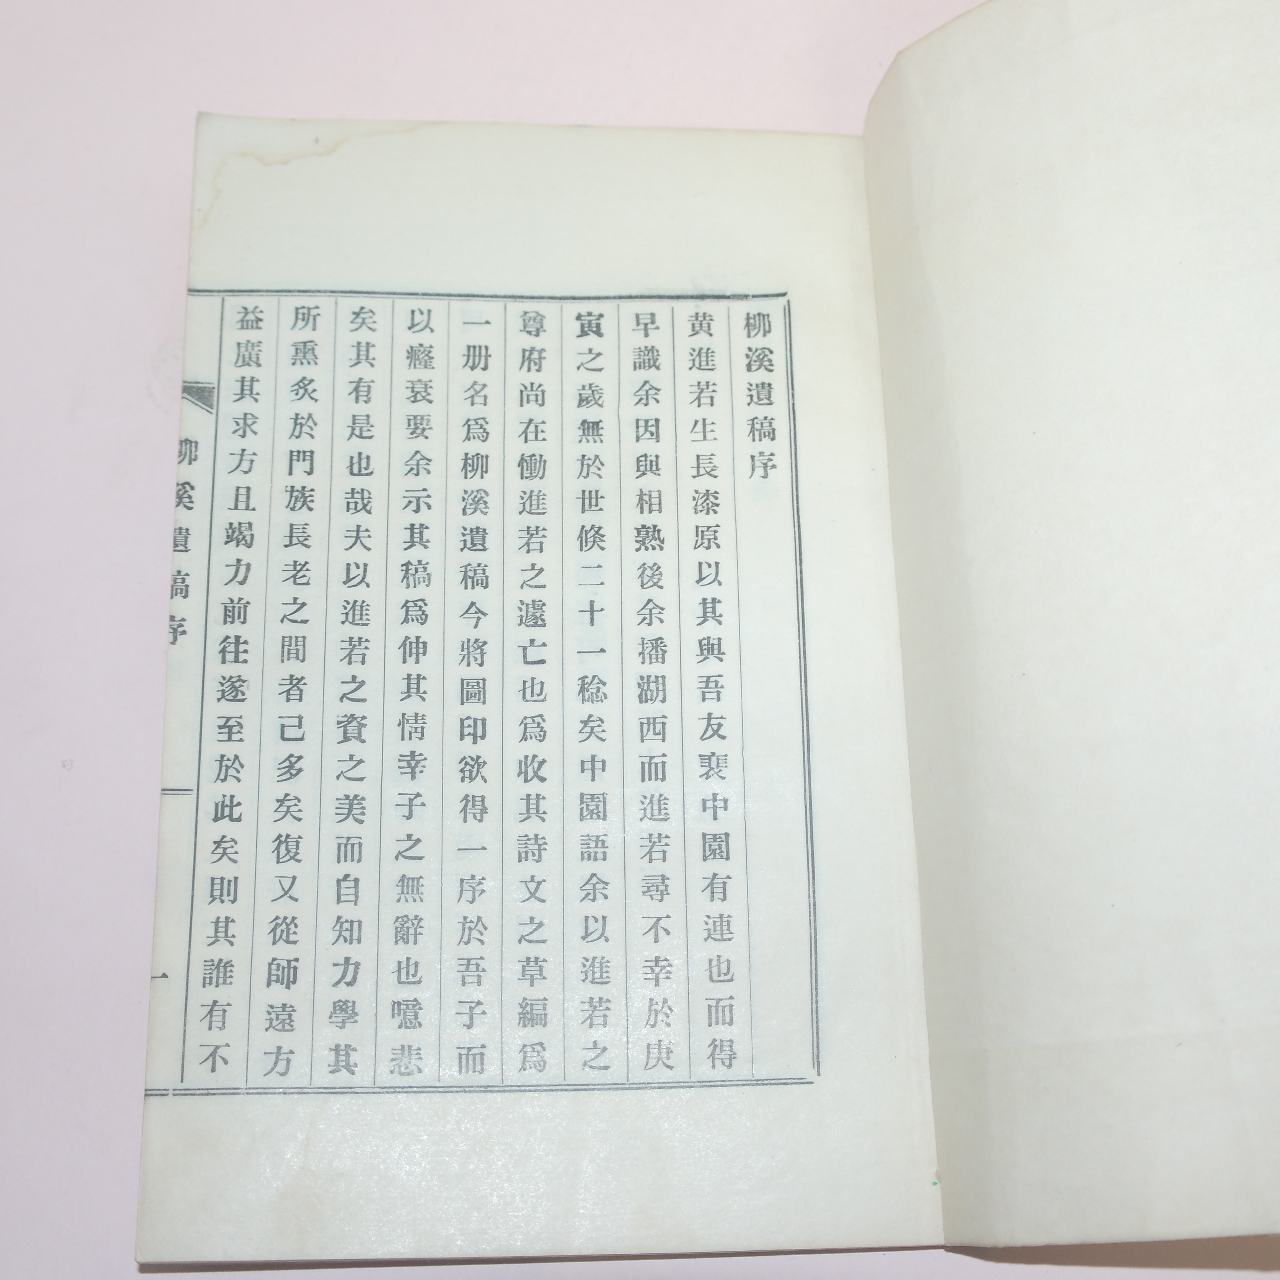 柳溪遺稿序
黄進若生長漆原以其與吾友裵中園有連也而得
早識余因與相熟後余播湖西而進若尋不幸於庚
寅之歲無於世倐二十一稔矣中園語余以進若之
尊府尚在慟進若之遽亡也爲收其詩文之草編爲
一册名爲柳溪遺稿今將圖印欲得一序於吾子而
以癃衰要余示其稿爲伸其情幸子之無辭也噫悲
矣其有是也哉夫以進若之資之美而自知力學其
所熏炙於門族長老之間者己多矣復又從師遠方
益廣其求方且竭力前往遂至於此矣則其誰有不
柳溪遺稿序
一